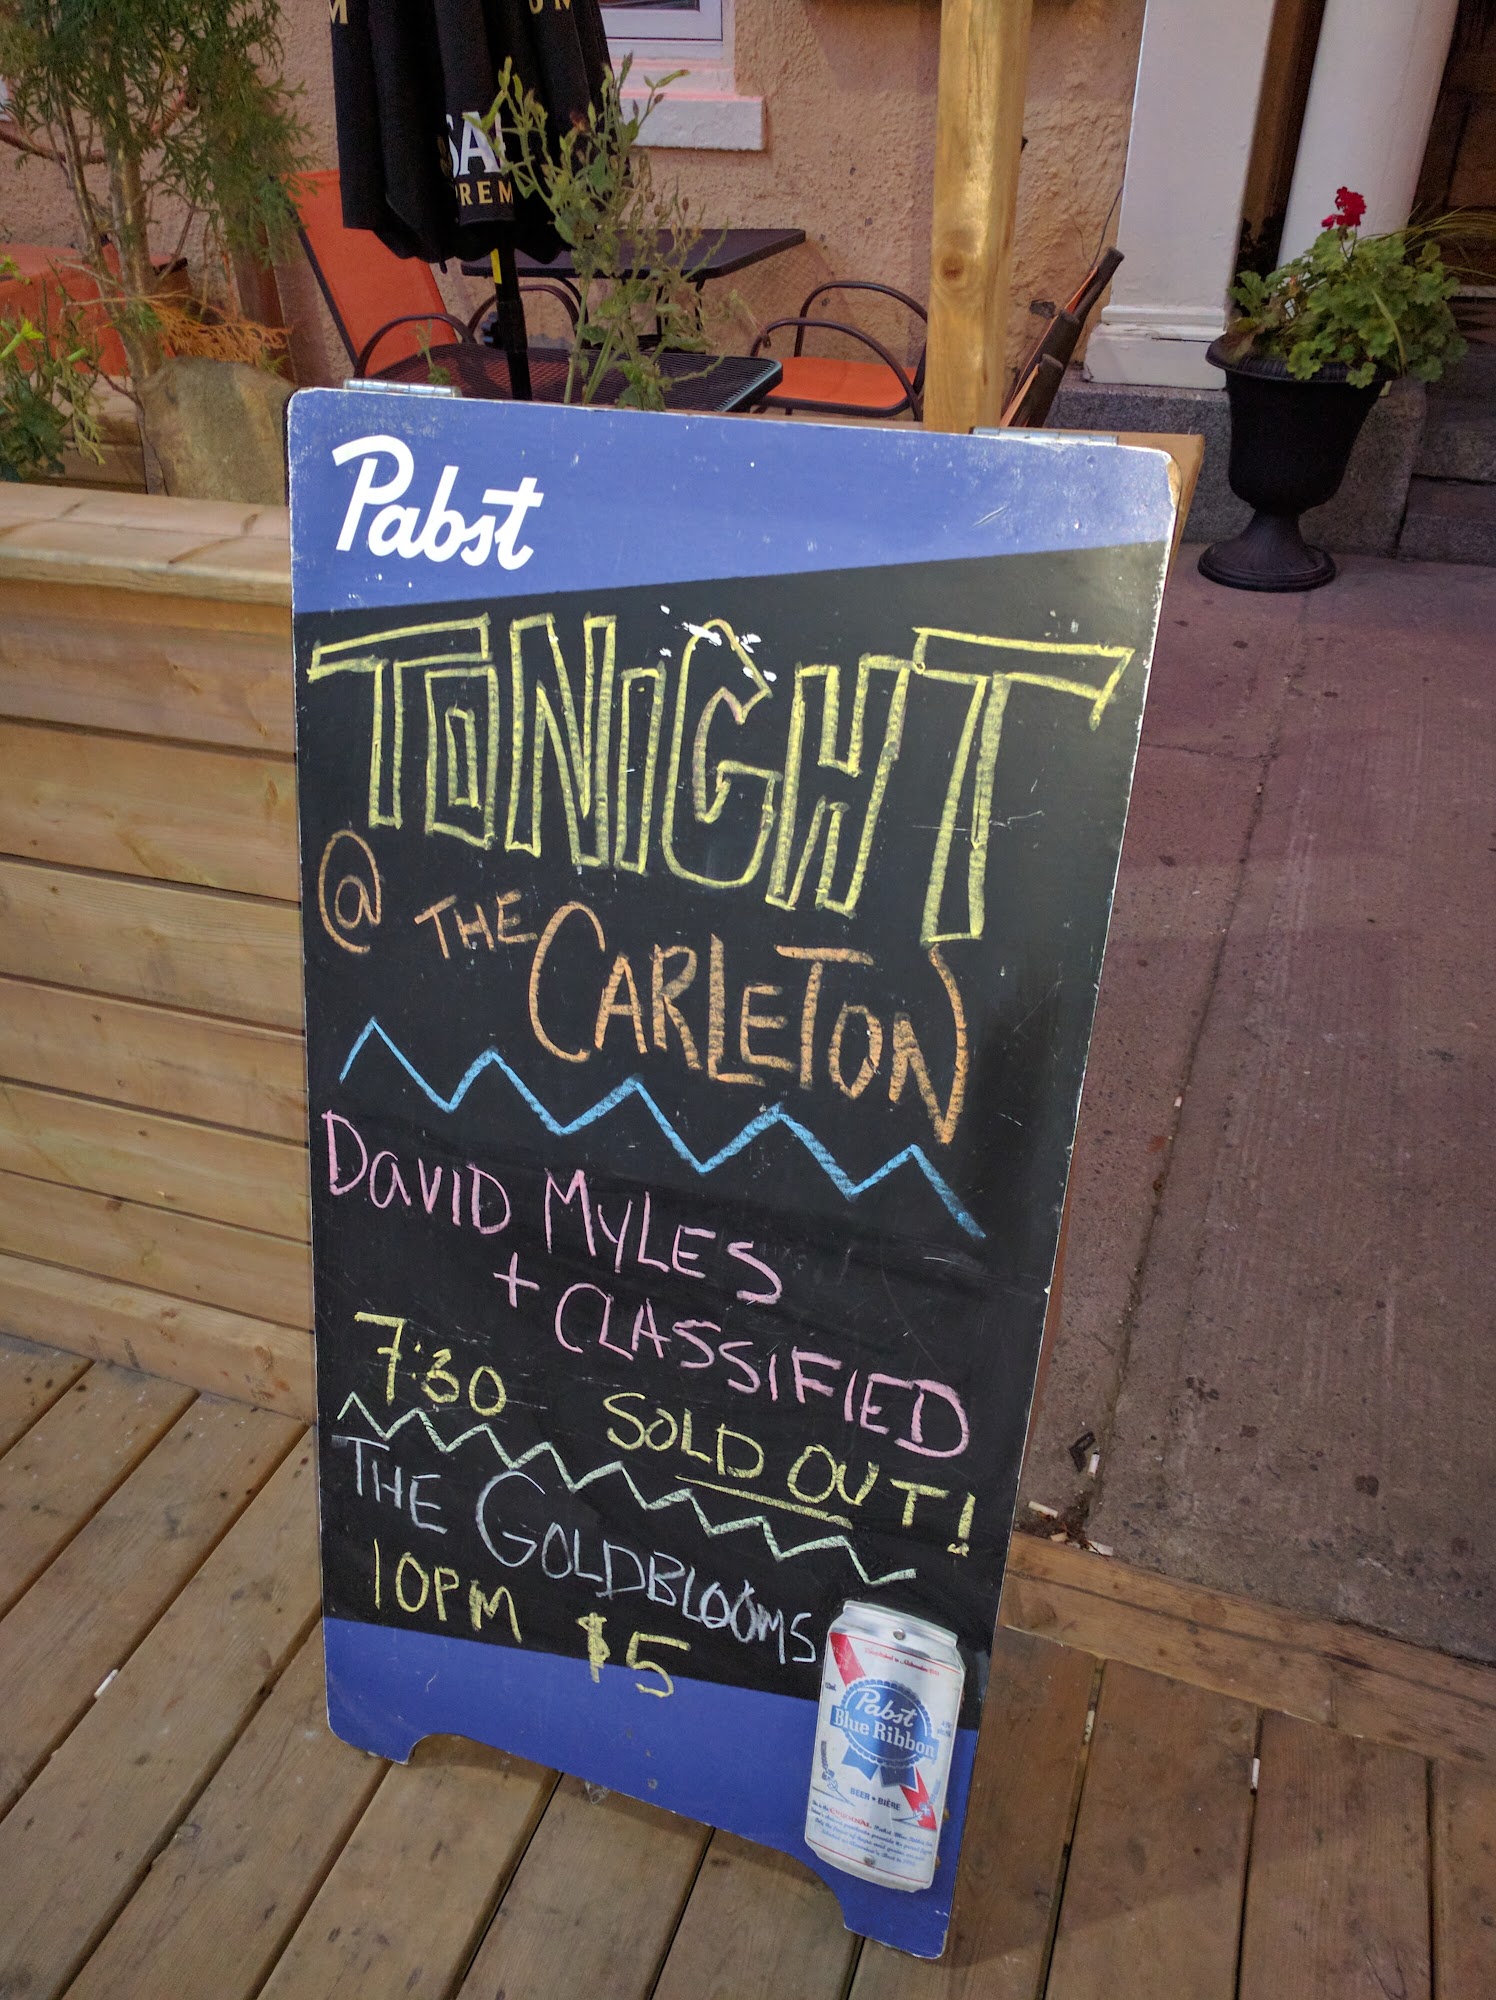 Pabst
TONIGHT
@ THE CARLETON
DaVID MYLES
+ CLASSIFIED
7:30 SOLD OUT!
THE GOLDBLOOMS
10PM $5
Pabst
Blue Ribbon
BEER • BIÈRE